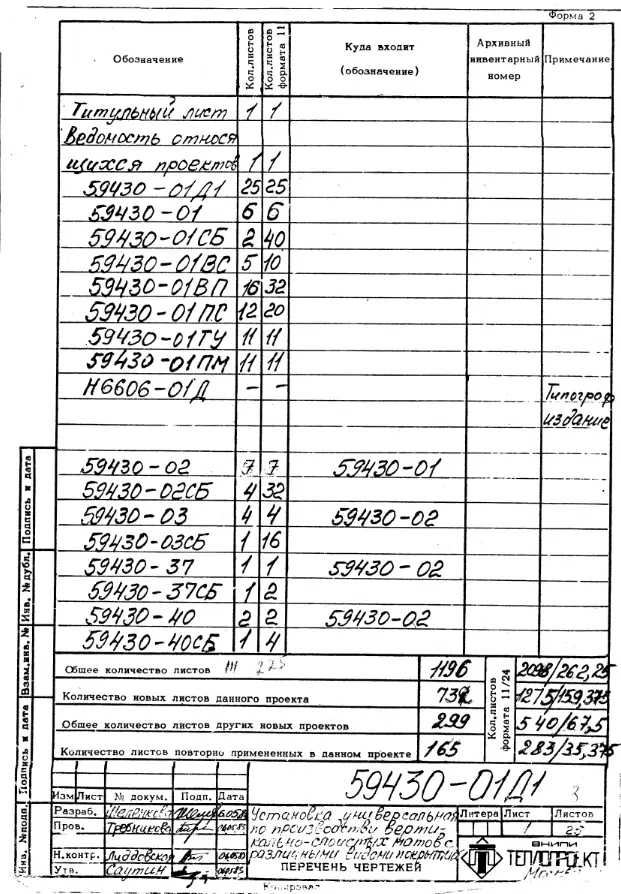 Форма 2
Обозначение Кол.листов Кол.листов формата 11 Куда входит (обозначение) Архивный инвентарный номер Примечание
Титульный лист 1 1
Ведомость относя
щихся проектов 1 1
59430-01Д1 25 25
59430-01 6 6
59430-01СБ 2 40
59430-01ВС 5 10
59430-01ВП 16 32
59430-01ПС 12 20
59430-01ТУ 11 11
59430-01ПМ 11 11
Н6606-01Д — — Типограф
издание
59430-02 7 7 59430-01
59430-02СБ 4 32
59430-03 4 4 59430-02
59430-03СБ 1 16
59430-37 1 1 59430-02
59430-37СБ 1 2
59430-40 2 2 59430-02
59430-40СБ 1 4
Общее количество листов 1196 2098/262,25
Количество новых листов данного проекта 732 1275/159,375
Общее количество листов других новых проектов 299 540/67,5
Количество листов повторно примененных в данном проекте 165 283/35,375
Кол.листов формата 11/24
Инв. №подл. Подпись и дата Взам.инв. № Инв. №дубл. Подпись и дата
59430-01Д1 3
Изм Лист № докум. Подп. Дата
Разраб.
Пров. Требникова
Н.контр.
Утв. Саутин
Установка универсальная
по производству верти-
кально-слоистых матов с
различными видами покрытий
ПЕРЕЧЕНЬ ЧЕРТЕЖЕЙ
Литера Лист Листов
1 25
ВНИПИ
ТЕПЛОПРОЕКТ
Москва
Копировал